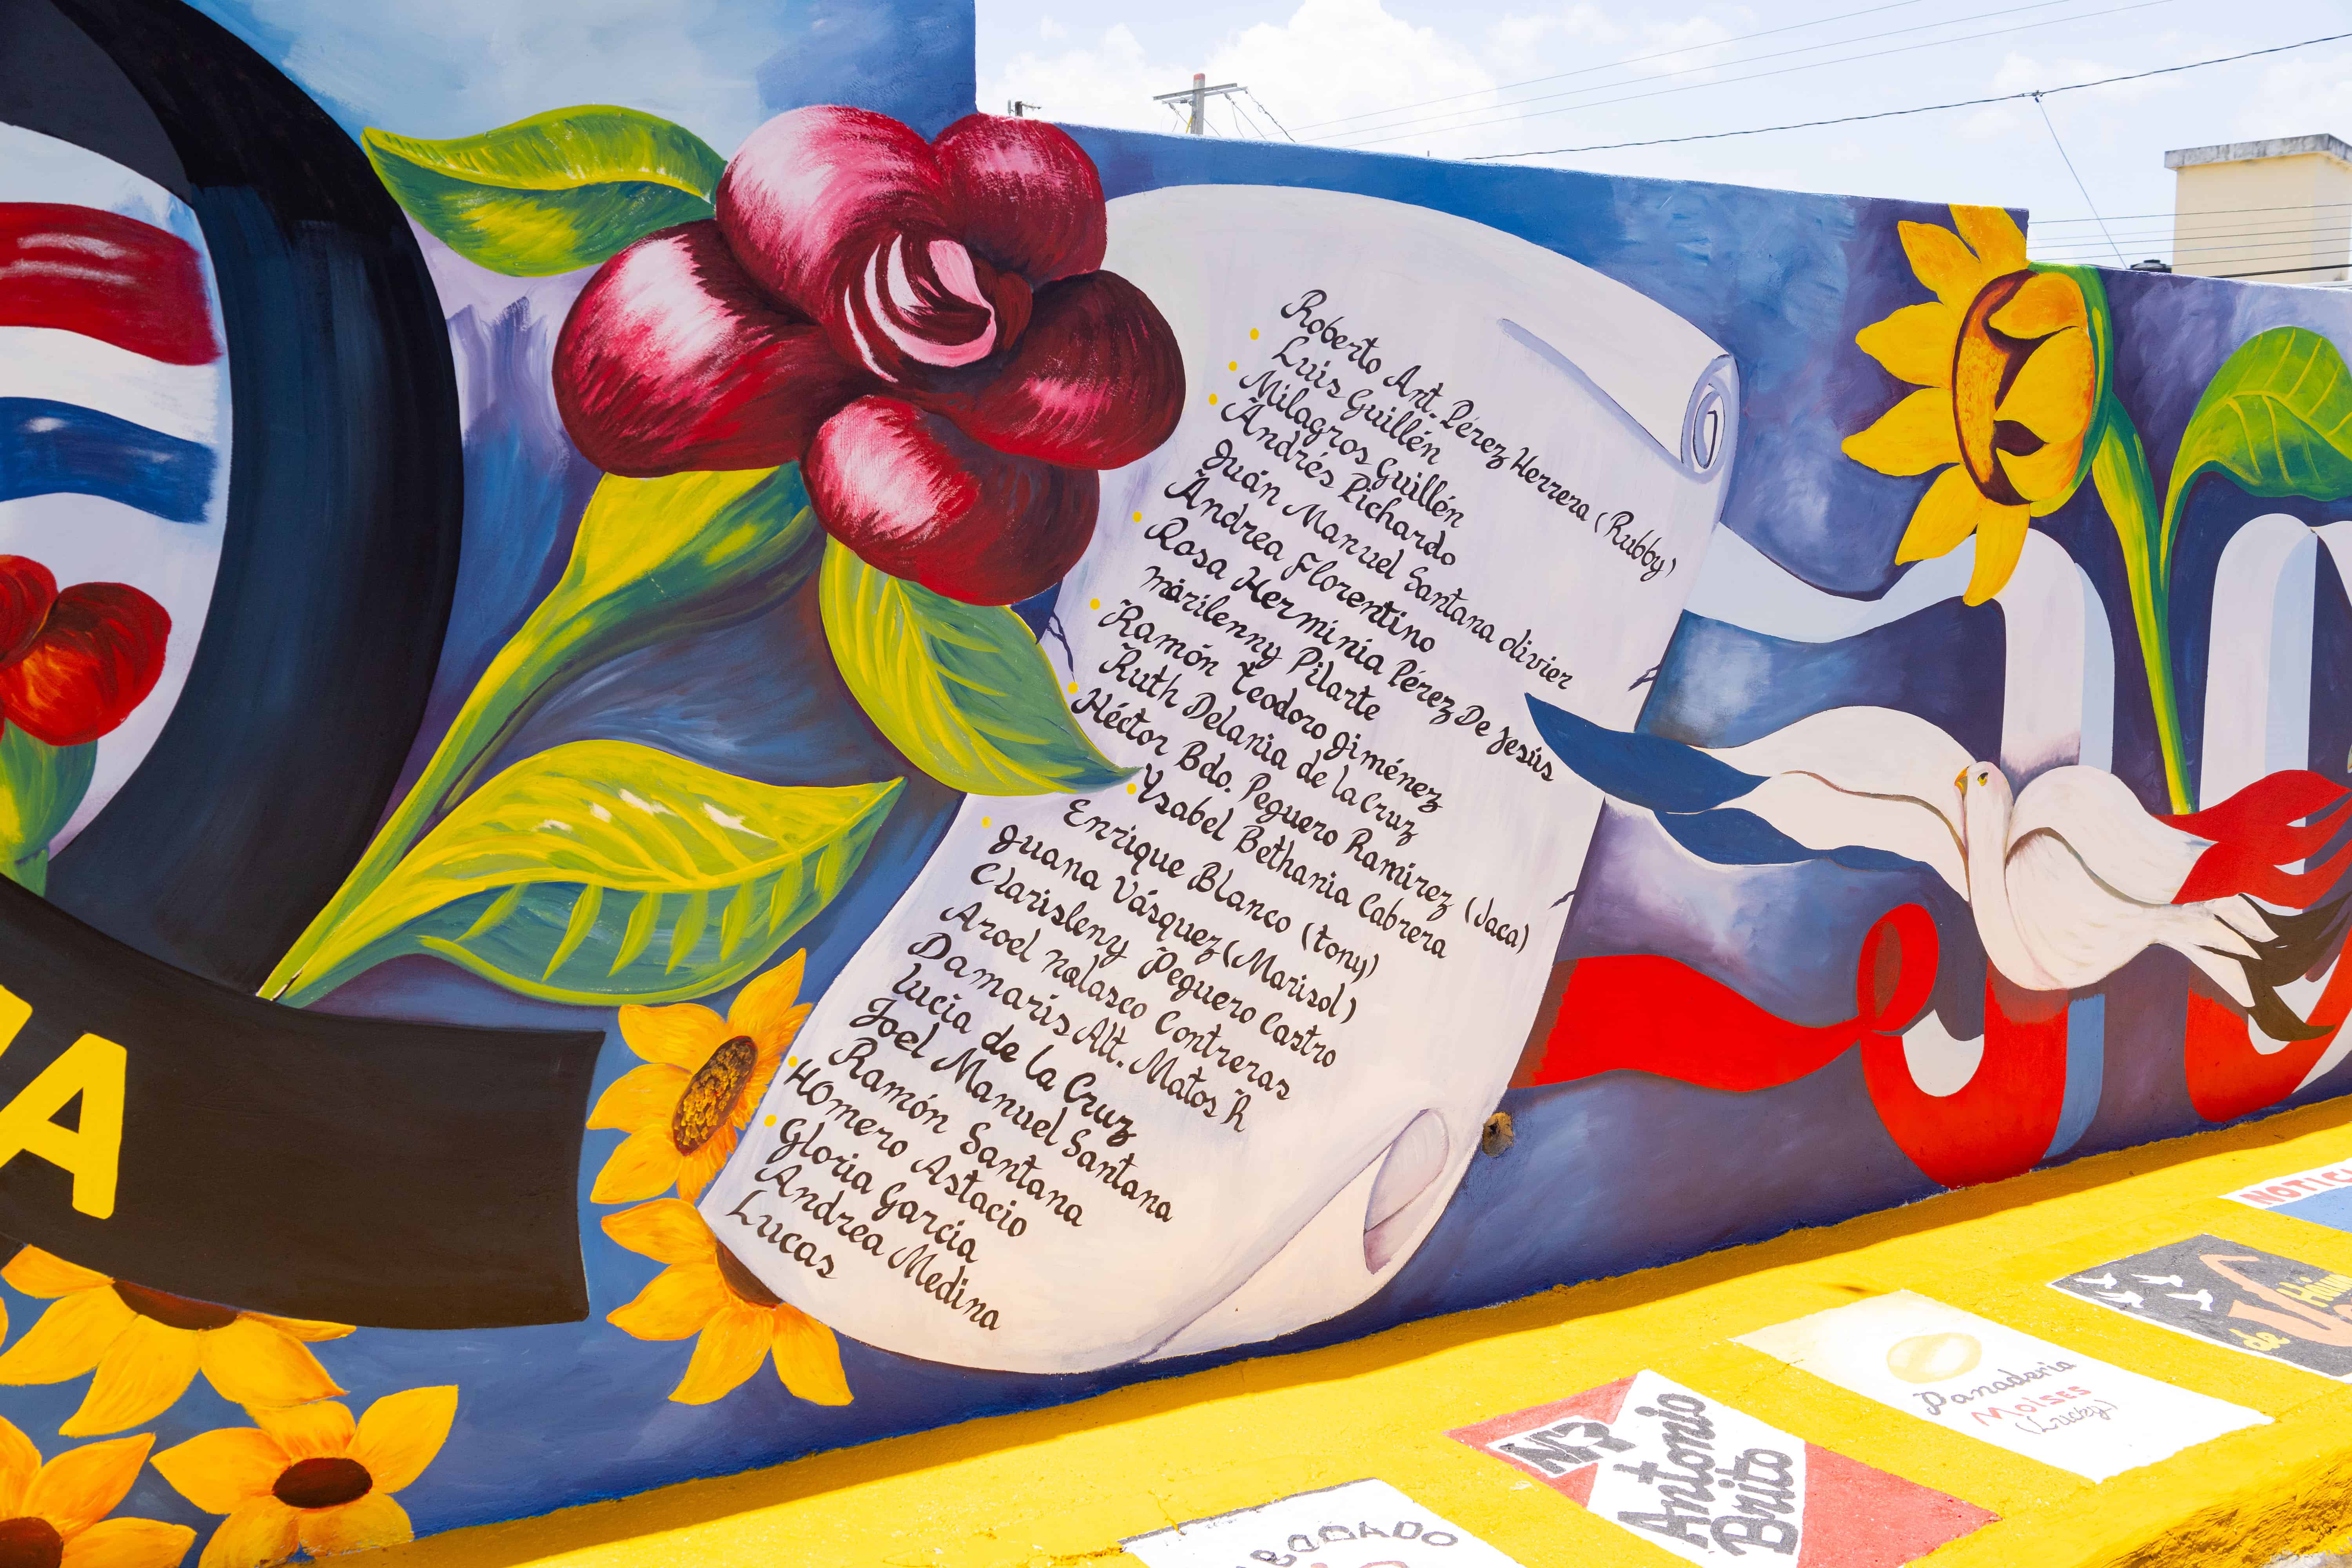 Roberto Ant. Pérez Herrera (Rubby)
Luis Guillén
Milagros Guillén
Andrés Pichardo
Juán Manuel Santana olivier
Andrea Florentino
Rosa Herminia Pérez De Jesús
marilenny Pilarte
Ramón Teodoro Jiménez
Ruth Delania de la Cruz
Héctor Bdo. Peguero Ramirez (Jaca)
Ysabel Bethania Cabrera
Enrique Blanco (tony)
Juana Vásquez (Marisol)
Clarisleny Peguero Castro
Aroel nolasco Contreras
Damaris Alt. Matos R
lucia de la Cruz
Joel Manuel Santana
Ramón Santana
HOmero Astacio
Gloria Garcia
Andrea Medina
Lucas
A
de
Panaderia
Moises
(Lucky)
Antonio
Brito